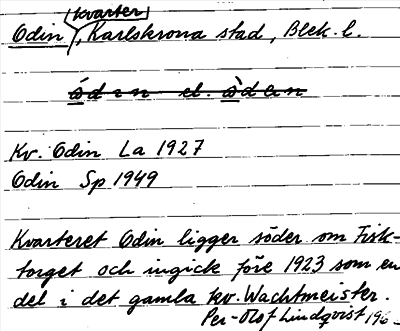 kvarter
Odin, Karlskrona stad, Blek. l.
ódin el. òden
Kv. Odin La 1927
Odin Sp 1949
Kvarteret Odin ligger söder om Fisk-
torget och ingick före 1923 som en
del i det gamla kv. Wachtmeister.
Per-Olof Lindqvist 196